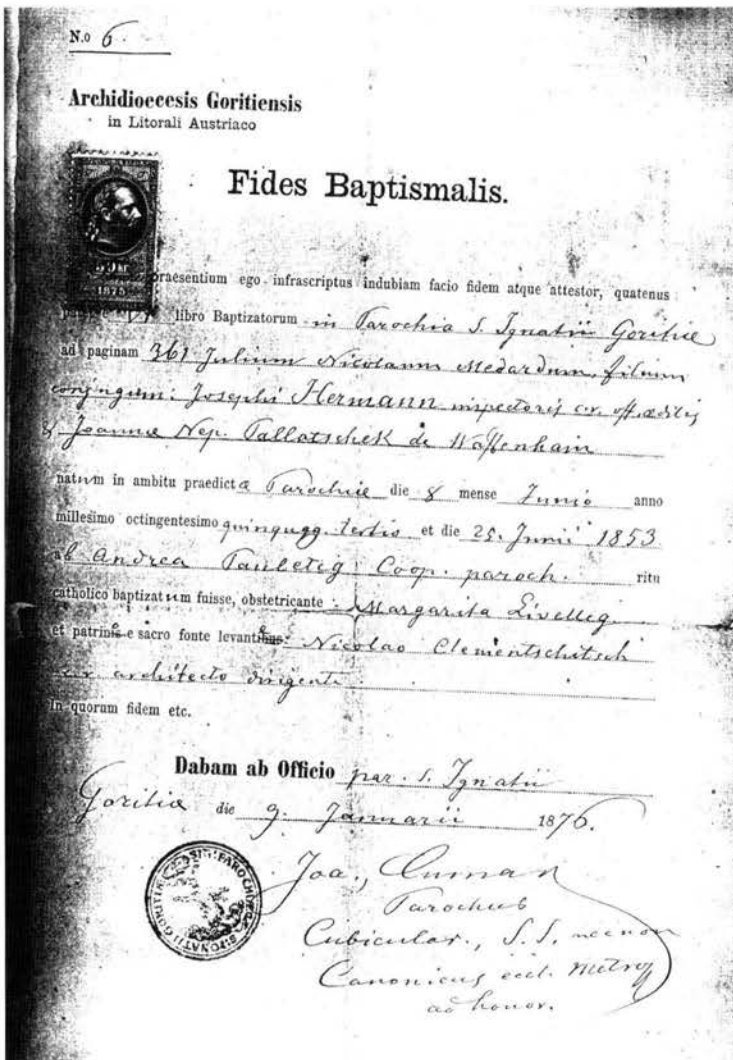 N.o 6.
Archidioecesis Goritiensis
in Litorali Austriaco
Fides Baptismalis.
1875
praesentium ego infrascriptus indubiam facio fidem atque attestor, quatenus
libro Baptizatorum in Parochia S. Ignatii Goritiæ
ad paginam 361 Julium Nicolaum Medardum, filium
conjugum: Josephi Hermann inspectoris
& Joannæ Nep. Pallotschek de Waffenhain
natum in ambitu praedictæ Parochiæ die 8 mense Junio anno
millesimo octingentesimo quinquagg. tertio et die 25. Junii 1853
ab Andrea Coop. paroch. ritu
catholico baptizatum fuisse, obstetricante Margarita
et patrinis e sacro fonte Nicolao Clementschitsch
architecto dirigente
In quorum fidem etc.
Dabam ab Officio par. S. Ignatii
Goritiæ die 9. Januarii 1876.
Joa,
Parochus
Cubicular., S. S. necnon
Canonicus eccl. metrop
ad honor.